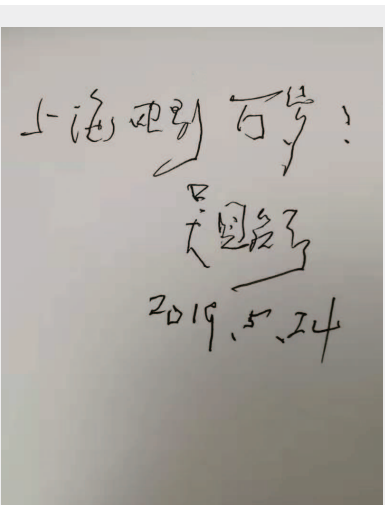 上海电影百岁!
吴贻弓
2019.5.24